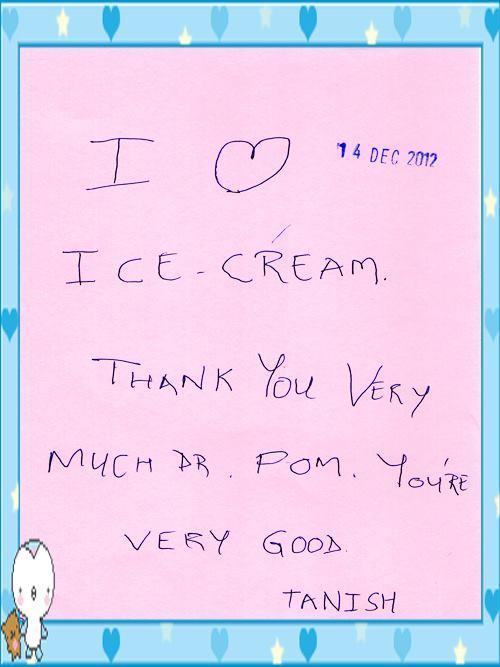 I ♡ 14 DEC 2012
ICE-CREAM.
THANK YOU VERY
MUCH DR. POM. YOU'RE
VERY GOOD.
TANISH